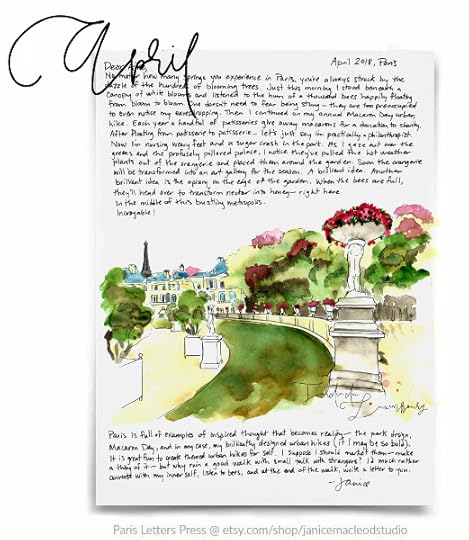 April
April 2018, Paris
Dear
No matter how many springs you experience in Paris, you're always struck by the
dazzle of the hundreds of blooming trees. Just this morning I stood beneath a
canopy of white blooms and listened to the hum of a thousand bees happily floating
from bloom to bloom. One doesn't need to fear being stung - they are too preoccupied
to even notice my eavesdropping. Then I continued on my annual Macaron Day urban
hike. Each year a handful of patisseries give away macarons for a donation to charity.
After floating from patisserie to patisserie... let's just say I'm practically a philanthropist.
Now I'm nursing weary feet and a sugar crash in the park. As I gaze out over the
greens and the profusely pillared palace, I notice they've pulled the hot weather
plants out of the orangerie and placed them around the garden. Soon the orangerie
will be transformed into an art gallery for the season. A brilliant idea. Another
brilliant idea is the apiary on the edge of the garden. When the bees are full,
they'll head over to transform nectar into honey - right here
in the middle of this bustling metropolis.
Incroyable!
Jardin du
Luxembourg
Paris is full of examples of inspired thought that becomes reality - the park design,
Macaron Day, and in my case, my brilliantly designed urban hikes (if I may be so bold).
It is great fun to create themed urban hikes for self. I suppose I should market them - make
a thing of it - but why ruin a good walk with small talk with strangers? I'd much rather
converse with my inner self, listen to bees, and at the end of the walk, write a letter to you.
- Janice
Paris Letters Press @ etsy.com/shop/janicemacleodstudio